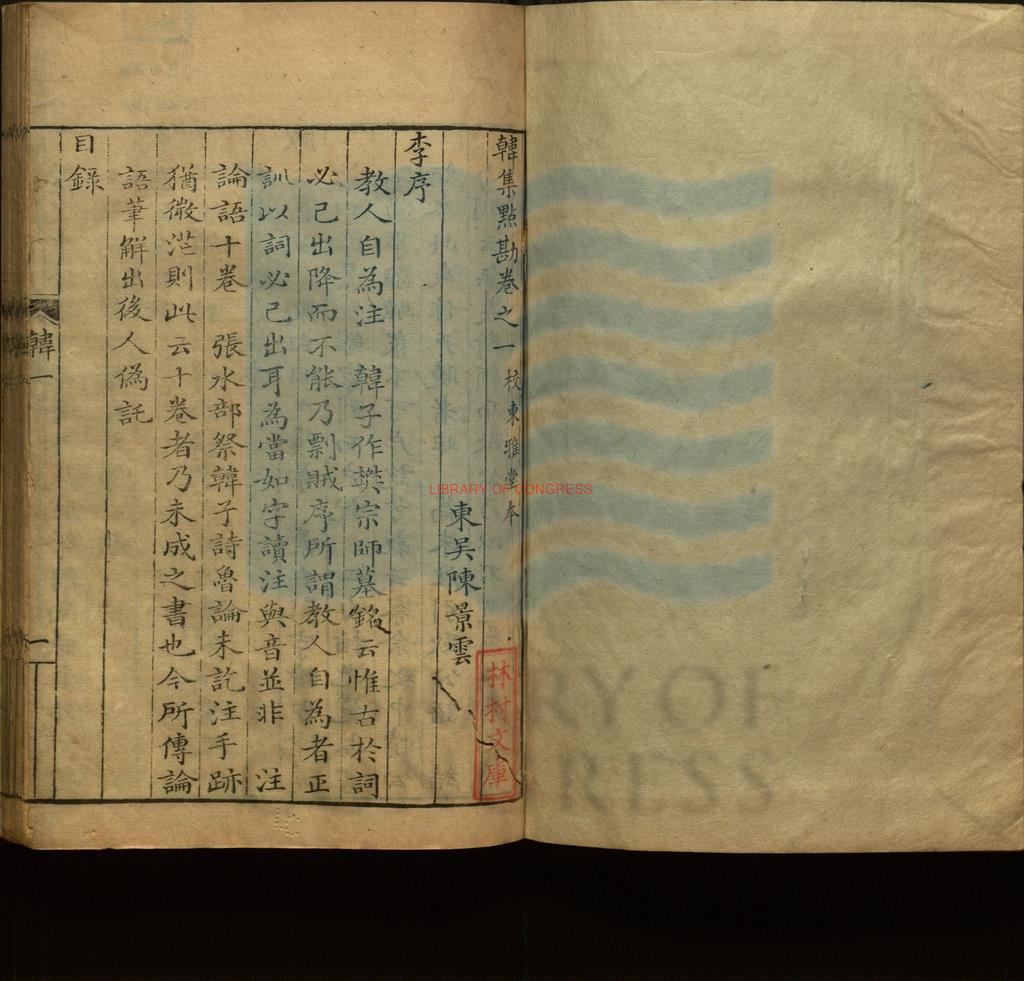 韓集點勘卷之一 校東雅堂本
東吴陳景雲
李序
教人自為注 韓子作樊宗師墓銘云惟古於詞
必己出降而不能乃剽賊序所謂教人自為者正
訓以詞必己出耳為當如字讀注與音並非 注
論語十卷 張水部祭韓子詩魯論未訖注手跡
猶微茫則此云十卷者乃未成之書也今所傳論
語筆解出後人偽託
目錄
韓一
一
林村文庫
LIBRARY OF CONGRESS